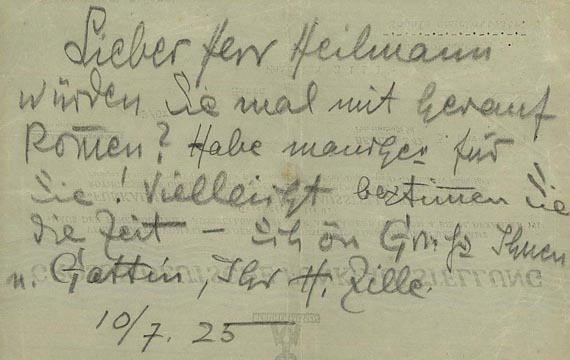 Lieber Herr Heilmann
würden Sie mal mit herauf
kom̅en? Habe manches für
Sie! Vielleicht bestim̅en Sie
die Zeit — schön Gruß Ihnen
u. Gattin, Ihr H. Zille.
10/7. 25